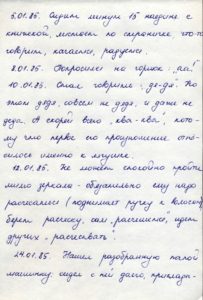 5.01.85. Сидит минут 15 подряд с
книжкой, листает по странице что-то
говорит, качается, радуется.
8.01.85. Попросился на горшок "аа".
10.01.85. Стал говорить "дядя". Но
этот дядя, совсем не дядя, и даже не
деда. А скорей всего "ква-ква", пото-
му что первое его произношение отно-
силось именно к лягушке.
12.01.85. Не может спокойно пройти
мимо зеркала - обязательно ему надо
расчесаться (поднимает ручку к волосам)
берет расческу, сам "расчешется", идет
других "расчесывать".
24.01.85. Нашел разобранную папой
машинку, сидел с ней долго, приклады-